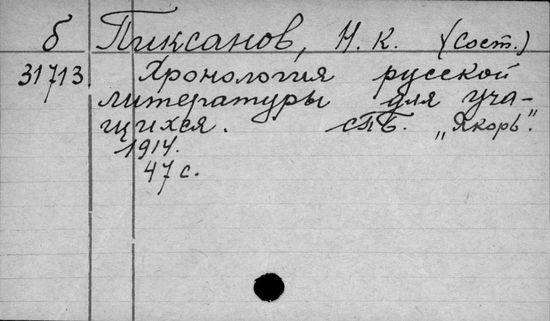 б Пиксанов, Н. К. (Сост.)
31713 Хронология русской
литературы для уча-
щихся. СПБ. „Якорь".
1914.
47 с.